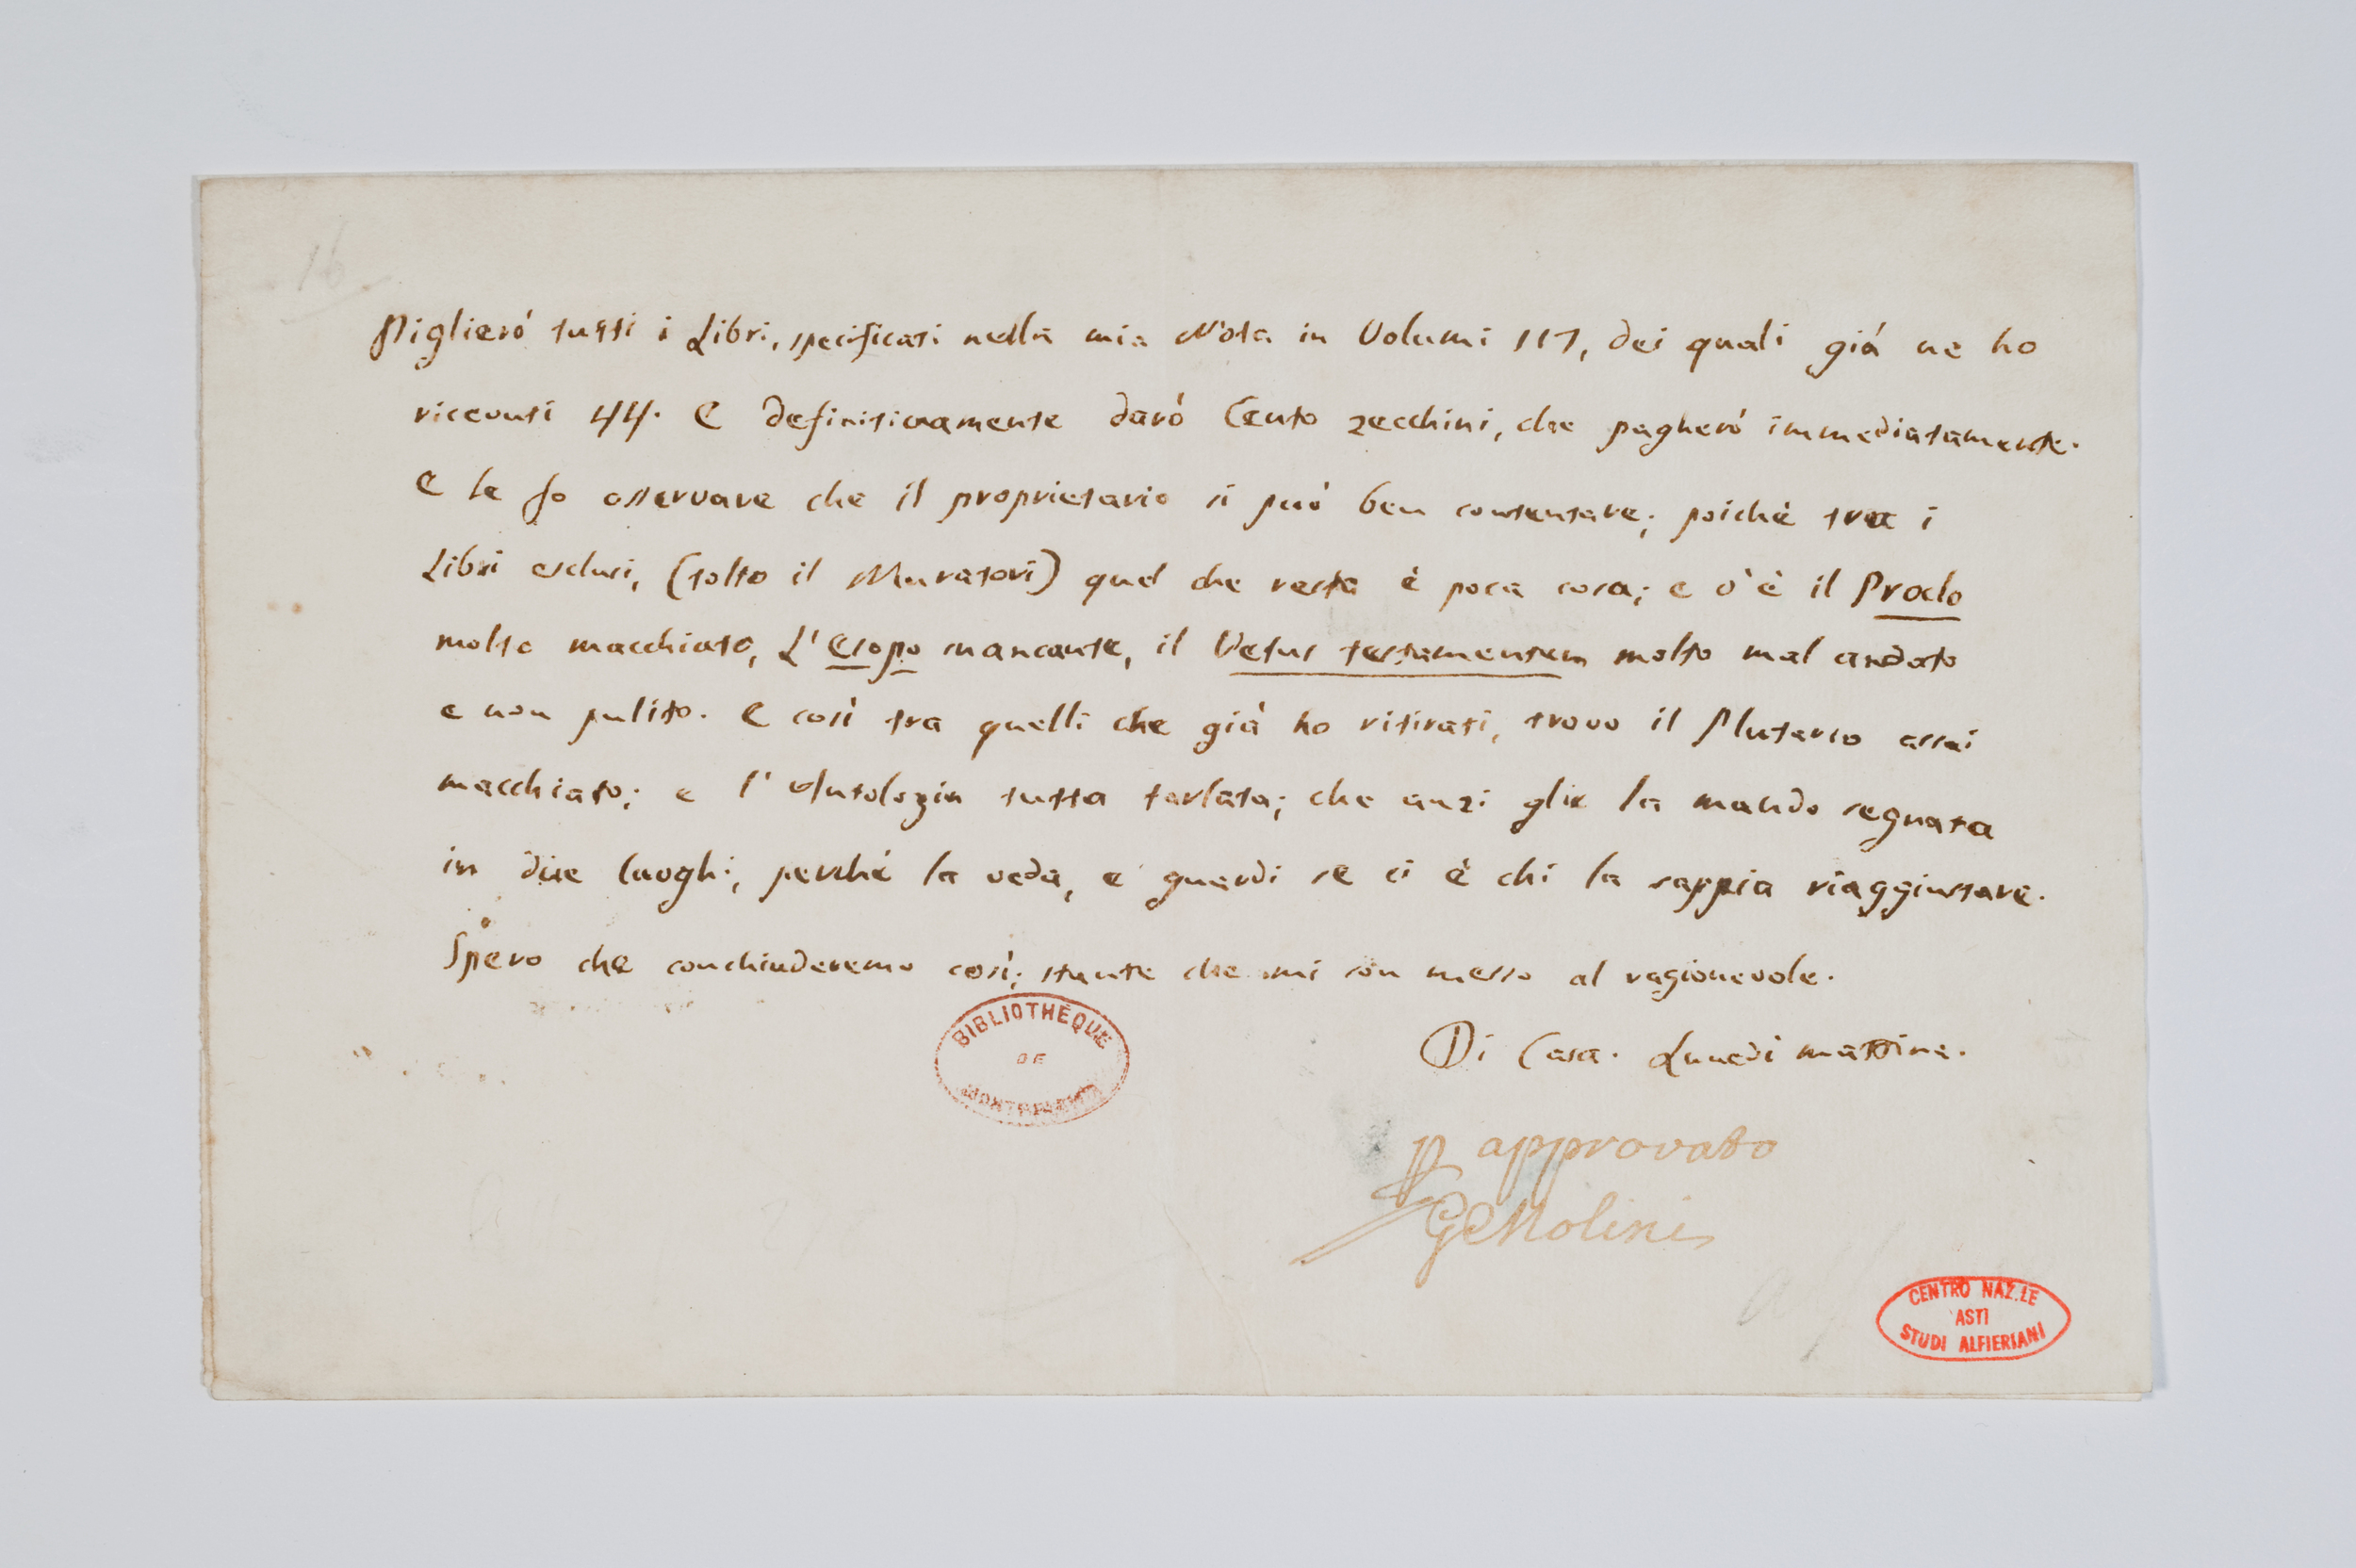 16
Piglieró tutti i Libri, specificati nella mia Nota in Volumi 117, dei quali giá ne ho
ricevuti 44. E definitivamente daró Cento zecchini, che pagheró immediatamente.
E le fo osservare che il proprietario si puó ben contentare; poichè tra i
Libri esclusi, (tolto il Muratori) quel che resta è poca cosa; e v'è il Proclo
molto macchiato, L'Esopo mancante, il Vetus testamentum molto mal andato
e non pulito. E così tra quelli che già ho ritirati, trovo il Plutarco assai
macchiato; e l'Antologia tutta tarlata; che anzi glie la mando segnata
in due luoghi, perchè la veda, e guardi se ci è chi la sappia riaggiustare.
Spero che conchiuderemo così; stante che mi son messo al ragionevole.
BIBLIOTHÈQUE
DE
Di Casa. Lunedì mattina.
approvato
G Molini
CENTRO NAZ.LE
ASTI
STUDI ALFIERIANI